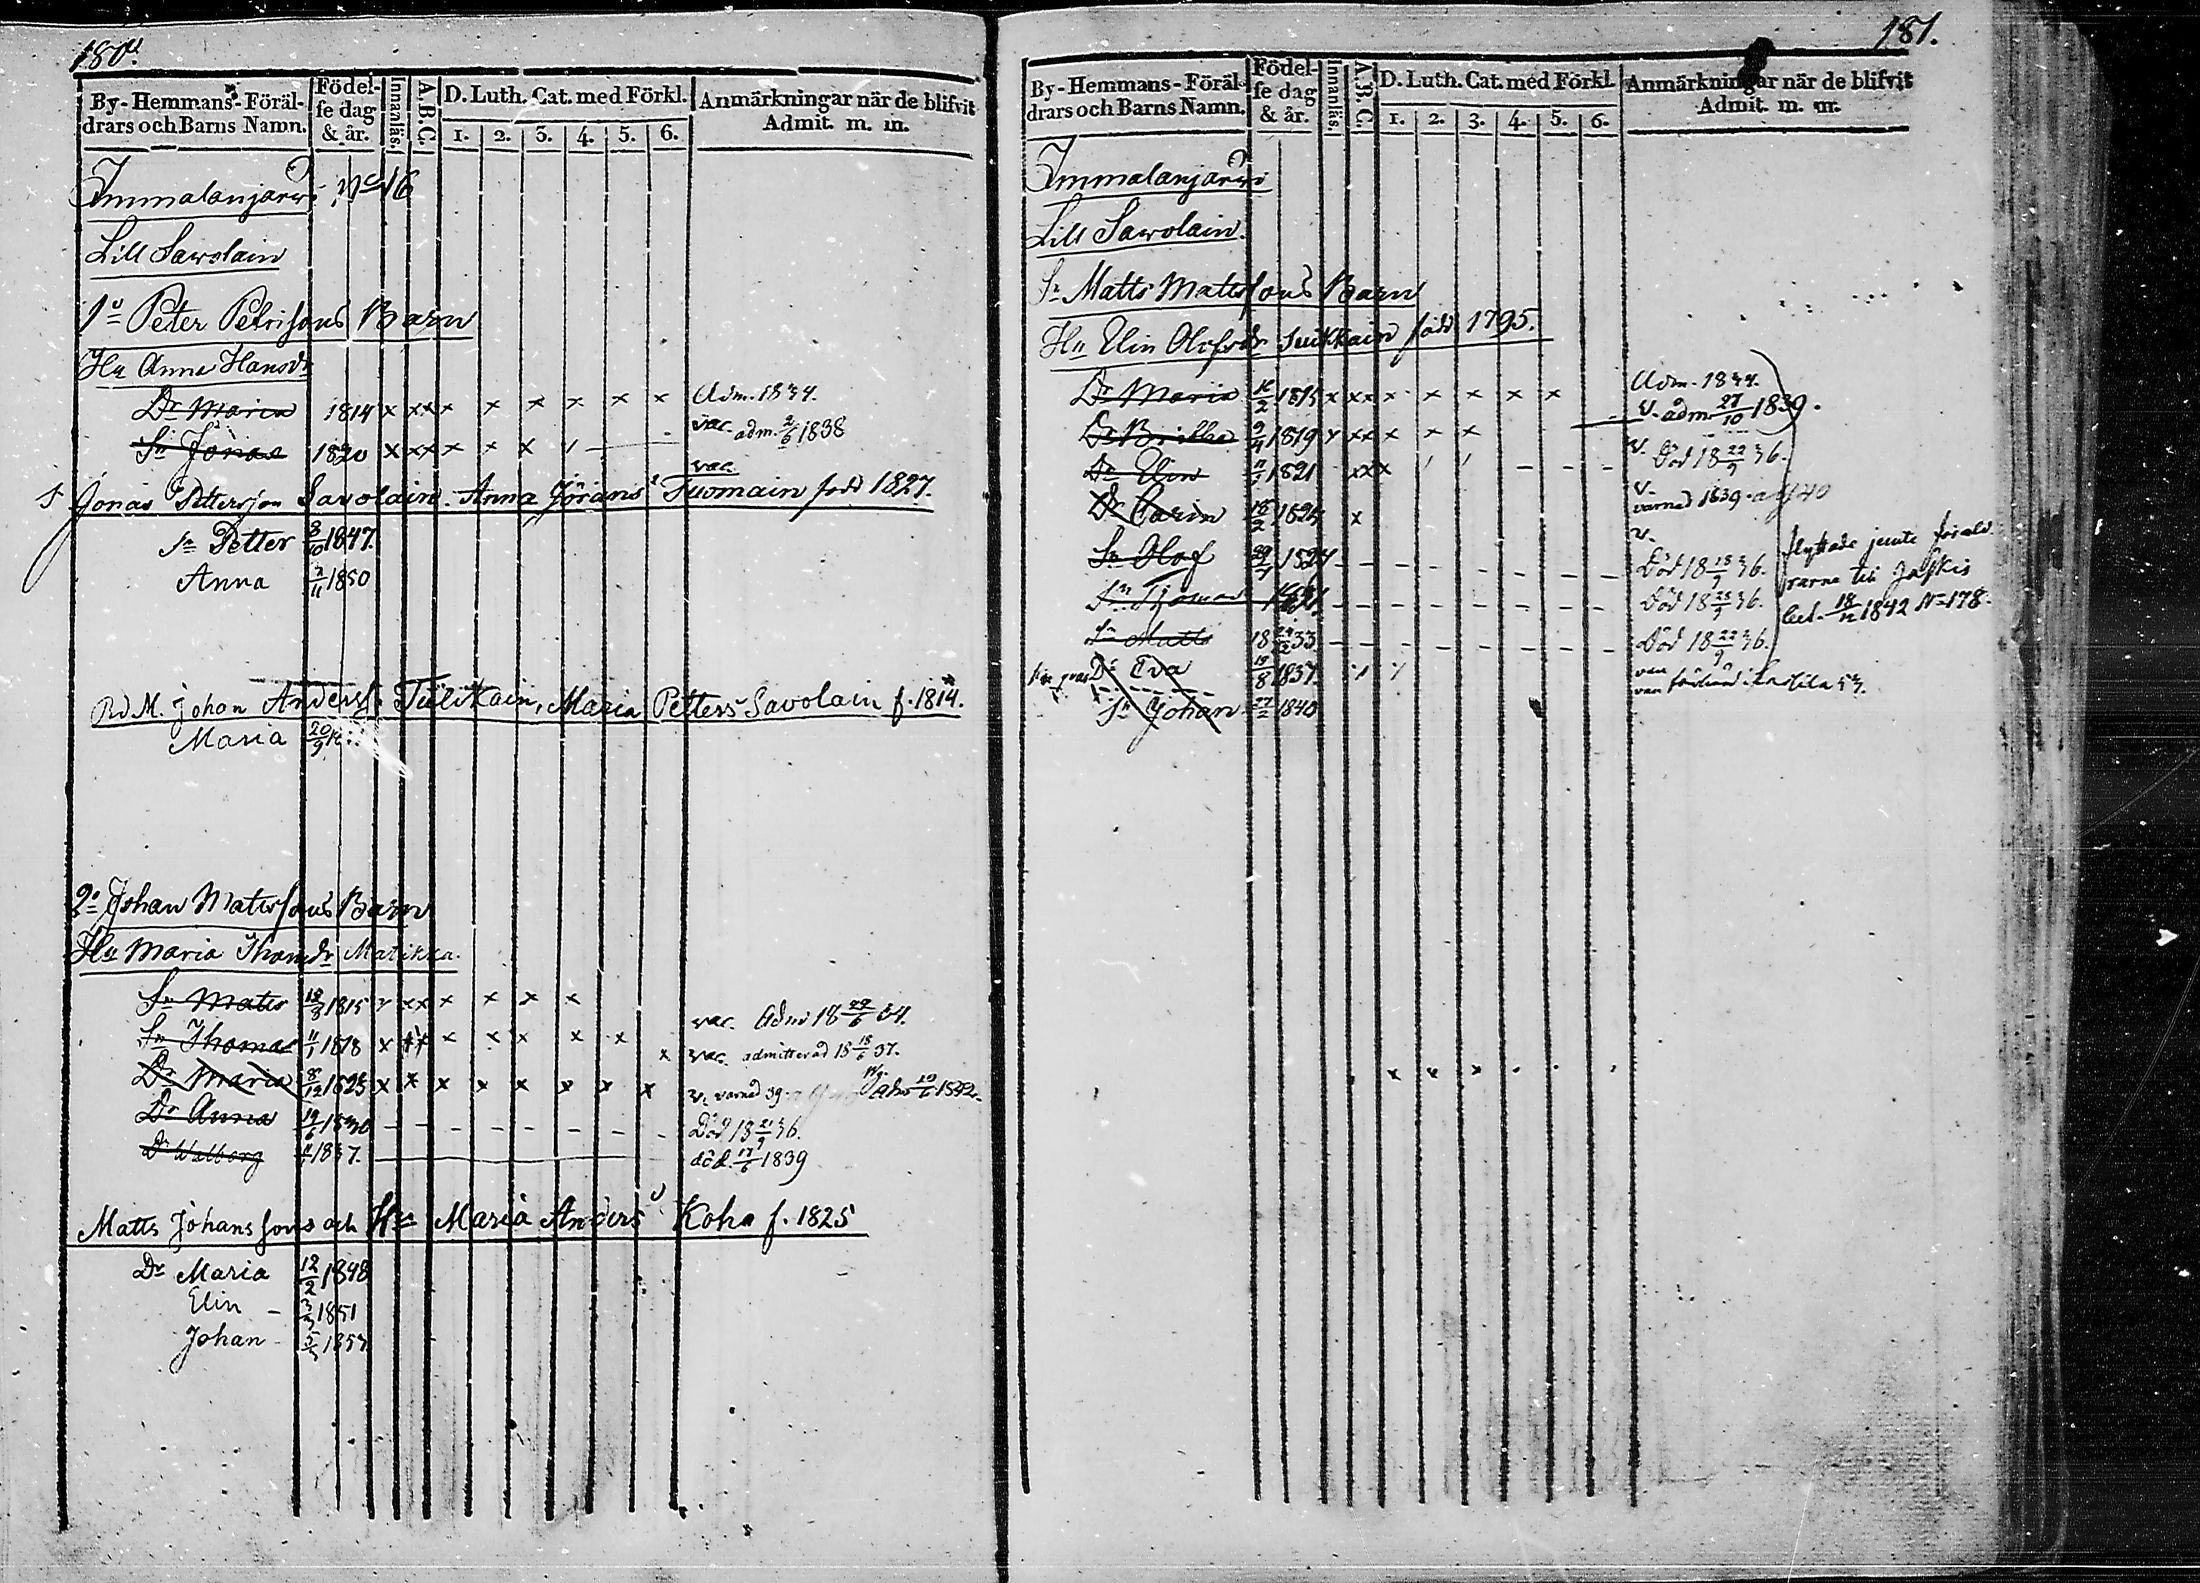 180.
By-Hemmans-Föräl-
drars och Barns Namn.
Födel-
se dag
& år.
Innanläs.
A.B.C.
D. Luth. Cat. med Förkl.
1. 2. 3. 4. 5. 6.
Anmärkningar när de blifvit
Admit. m. m.
Immalanjarwi No 16
Lill Sawolain
1o Peter Petrisons Barn
Hu Anna Hansdr
Dr Maria 1814 x xx x x x x x x Adm. 1834.
Sn Jonas 1820 x xx x x x vac. adm. 2/6 1838
vac.
Jonas Pettersson Savolain. Anna Jörans Tuomain född 1827.
Sn Petter 8/10 1847.
Anna 2/11 1850
Johan Anders Tulikain, Maria Petters Savolain f. 1814.
Maria 20/9
2o Johan Matssons Barn
Hu Maria Thomdr Matikka.
Sn Matts 1815 x xx x x x x vac. Adm 18 29/6 34.
Sn Thomas 11/1 1818 x x x x x x x x vac. admitterad 18 18/6 37.
Dr Maria 8/12 1825 x x x x x x x x v. varnad 39. adm 19/6 1842.
Dr Anna 19/6 1830 Död 18 21/9 36.
Dr Walborg 1837. död. 17/6 1839
Matts Johanssons och Hu Maria Anders Koho f. 1825
Dr Maria 12/2 1848
Elin 1851
Johan 185
181.
By-Hemmans-Föräl-
drars och Barns Namn.
Födel-
se dag
& år.
Innanläs.
A.B.C.
D. Luth. Cat. med Förkl.
1. 2. 3. 4. 5. 6.
Anmärkningar när de blifvit
Admit. m. m.
Immalanjarwi
Lill Sawolain.
Matts Mattssons Barn
Hu Elin Olofsdr Suikkain född 1795.
Dr Maria 1815 x xx x x x x x Adm. 1834.
v. adm 27/10 1839.
Dr Britta 9/4 1819 x xx x x x
v. Död 18 22/9 36.
Dr Elin 1821 xx x
v.
varnad 1839
Dr Carin 18/2 x
v.
Sn Olof Död 18 18/9 36.
Sn Thomas Död 18 25/9 36.
Sn Matts 18 33 Död 18 22/9 36.
flyttade jemte föräld-
rarne till Jäskis
bet. 18/12 1842 No 178.
Dr Eva 19/8 1837.
Sn Johan 27/2 1840